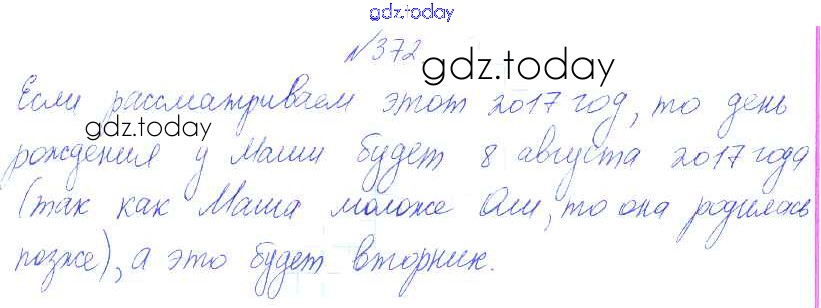 gdz.today
№372
gdz.today
Если рассматриваем этот 2017 год, то день
gdz.today
рождения у Маши будет 8 августа 2017 года
(так как Маша моложе Оли, то она родилась
позже), а это будет вторник.